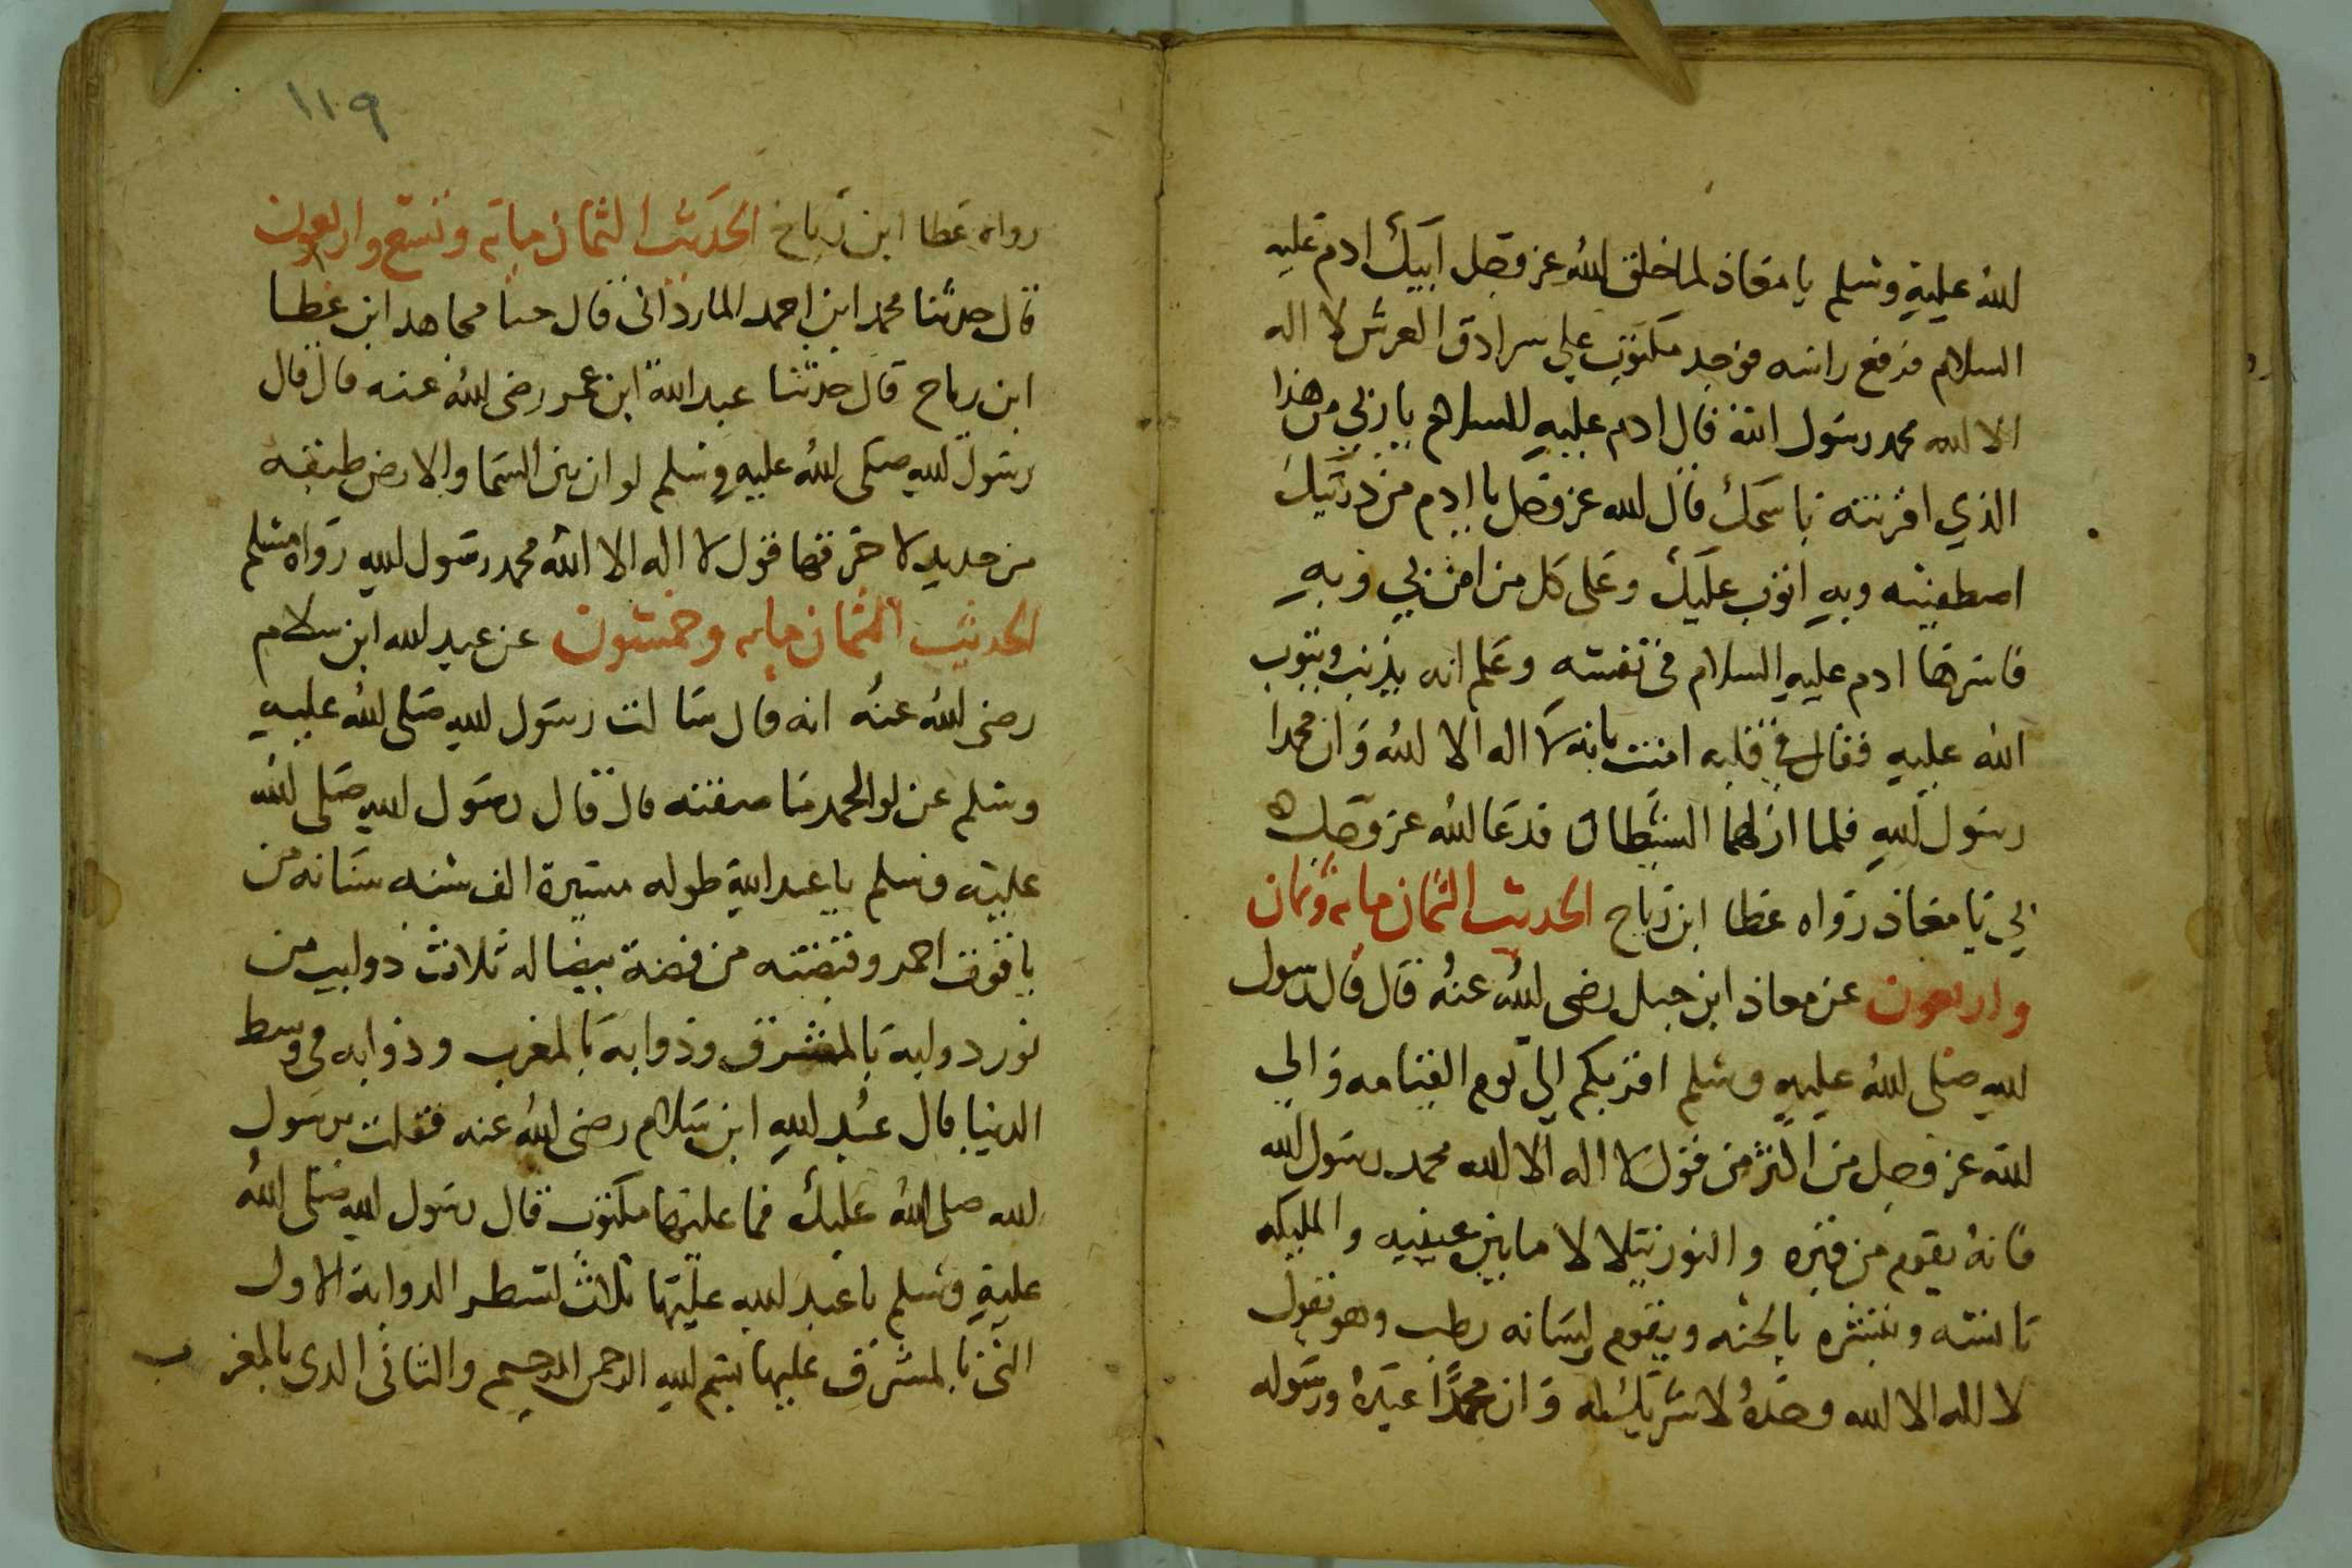 لله عليه وسلم يا معاذ لما خلق الله عز وجل ابيك ادم عليه
السلام فرفع راسه فوجد مكتوب علي سرادق العرش لا اله
الا الله محمد رسول الله قال ادم عليه السلام يا ربي من هذا
الذي اقرنته باسمك قال الله عز وجل يا ادم من ذريتك
اصطفيته وبه اتوب عليك وعلى كل من امن بي وبه
فاسرها ادم عليه السلام في نفسه وعلم انه يذنب ويتوب
الله عليه فقال في قلبه امنت بانه لا اله الا الله وان محمدا
رسول الله فلما ازلهما الشيطان فدعا لله عز وجل
بي يا معاذ رواه عطا ابن رباح الحديث الثمان مايه وثمان
واربعون عن معاذ ابن جبل رضى الله عنه قال قال رسول
لله صلى الله عليه وسلم اقربكم الي يوم القيامه والي
لله عز وجل من اكثر من قول لا اله الا الله محمد رسول الله
فانه يقوم من قبره والنور يتلالا ما بين عينيه والمليكه
تانسه وتبشره بالجنه ويقوم لسانه رطب وهو يقول
لا اله الا الله وحده لا شريك له وان محمدا عبده ورسوله
١١٩
رواه عطا ابن رباح الحديث الثمان مايه وتسع واربعون
قال حدثنا محمد ابن احمد المارداني قال حدثنا مجاهد ابن عطا
ابن رباح قال حدثنا عبد الله ابن عمر رضى الله عنه قال قال
رسول لله صلى الله عليه وسلم لو ان بين السما والارض طبقه
من حديد لا خرقتها قول لا اله الا الله محمد رسول لله رواه مسلم
الحديث الثمان مايه وخمسون عن عبد الله ابن سلام
رضى الله عنه انه قال سالت رسول لله صلى الله عليه
وسلم عن لوا الحمد ما صفته قال قال رسول لله صلى الله
عليه وسلم يا عبد الله طوله مسيرة الف سنه سنانه من
ياقوت احمر وقبضته من فضة بيضا له ثلاث دوايب من
نور دوابة بالمشرق وذوابة بالمغرب وذوابه في وسط
الدنيا قال عبد الله ابن سلام رضى الله عنه فقلت يرسول
لله صلى الله عليك فما عليها مكتوب قال رسول لله صلى الله
عليه وسلم يا عبد لله عليها ثلاث لسطر الدوابة الاول
التي بالمشرق عليها بسم لله الرحمن الرحيم والثاني الدى بالمغرب